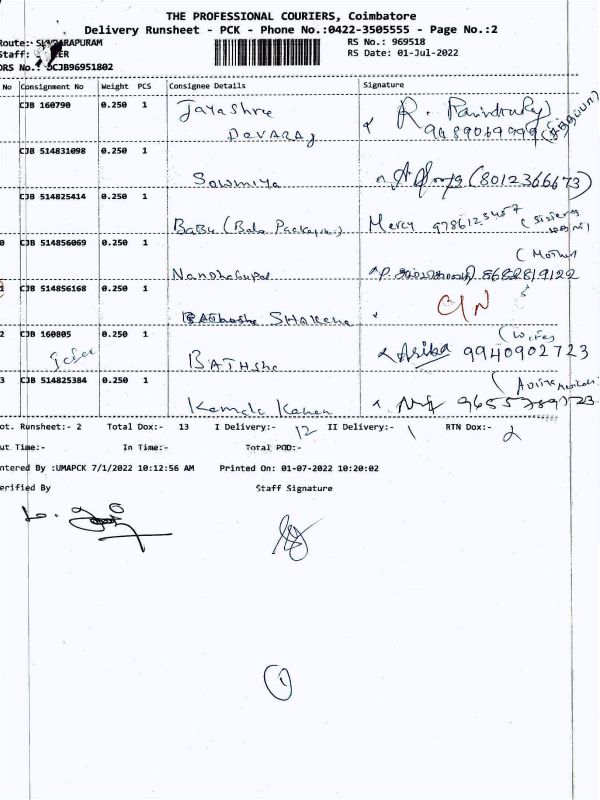 THE PROFESSIONAL COURIERS, Coimbatore
Delivery Runsheet - PCK - Phone No.:0422-3505555 - Page No.:2
Route:- RS No.: 969518
Staff: RS Date: 01-Jul-2022
DRS No.: DCJB96951802
No Consignment No Weight PCS Consignee Details Signature
CJB 160790 0.250 1 Jayashree R.
DEVARAJ 9489069999
CJB 514831098 0.250 1
Sowmiya (8012366673)
CJB 514825414 0.250 1
BaBu Mercy 9786123457 (Sister
CJB 514856069 0.250 1 (Mother
Nandhagopal 8682819122
CJB 514856168 0.250 1
2 CJB 160805 0.250 1 (Wife)
Asiba 9940902723
3 CJB 514825384 0.250 1
Kamala Kannan 9655789723
ot. Runsheet:- 2 Total Dox:- 13 I Delivery:- 12 II Delivery:- 1 RTN Dox:- 2
ut Time:- In Time:- Total POD:-
ntered By :UMAPCK 7/1/2022 10:12:56 AM Printed On: 01-07-2022 10:20:02
erified By Staff Signature
1